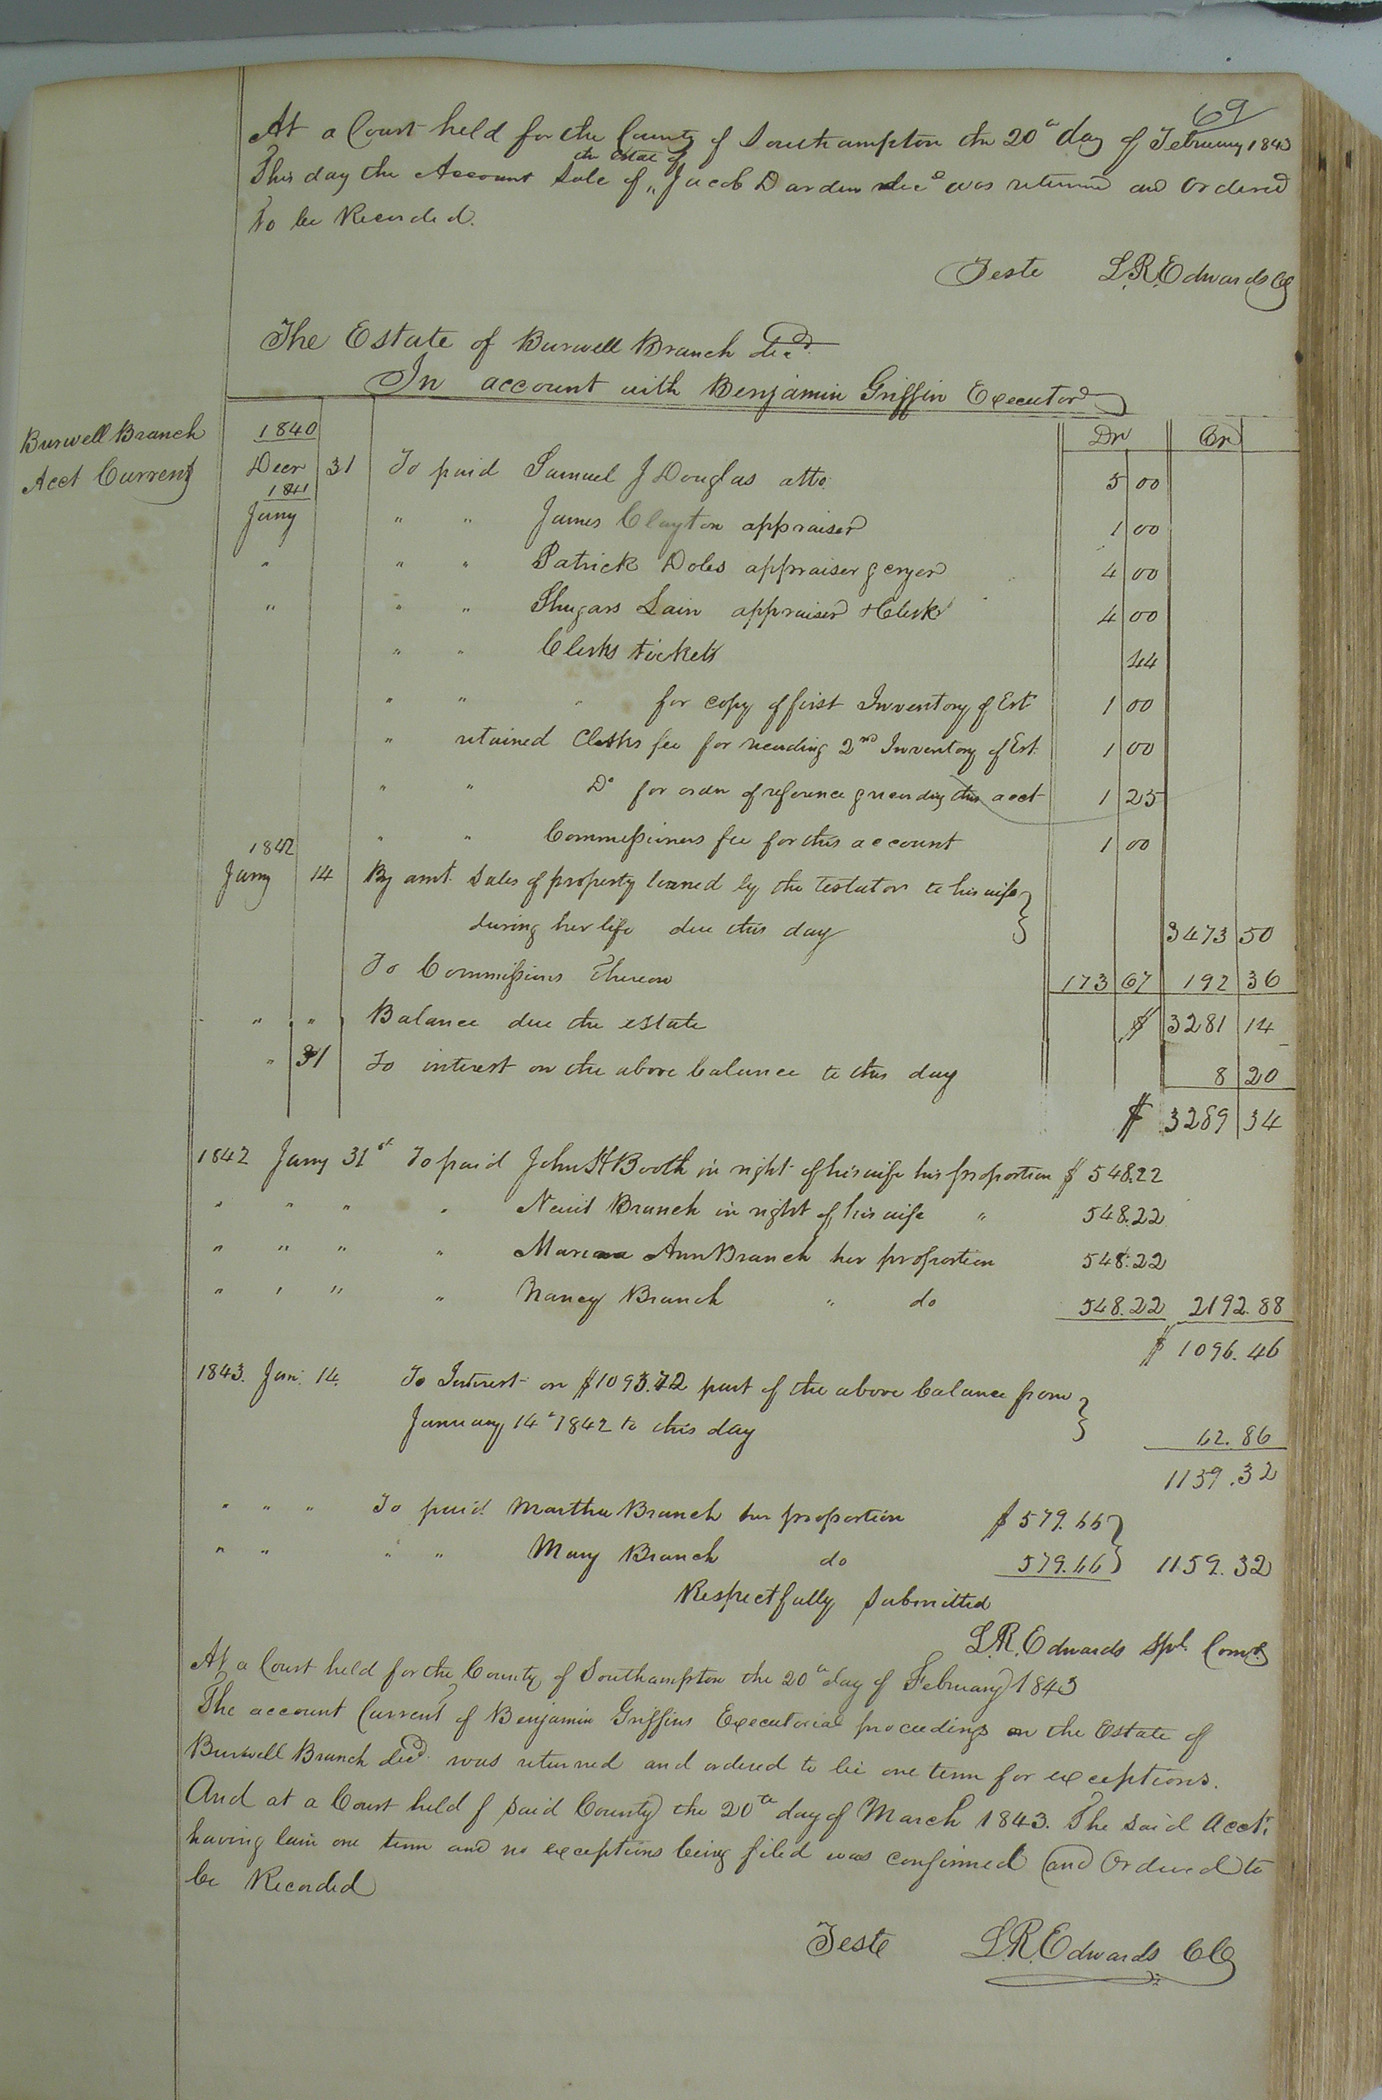 69
At a Court held for the County of Southampton the 20th day of February 1843
This day the Account Sale of "the Estate of Jacob Darden decd was returned and Ordered
to be Recorded.
Teste L.R. Edwards CC
The Estate of Burwell Branch decd.
In account with Benjamin Griffin Executor
Burwell Branch
Acct Current
1840 Dr Cr
Decr 31 To paid Samuel J Douglas atto 5 00
1841
Jany " " James Clayton appraiser 1 00
" " " Patrick Doles appraiser & cryer 4 00
" " " Shugars Lain appraiser & Clerk 4 00
" " Clerks tickets 44
" " " for copy of first Inventory of Est 1 00
" retained Clerks fee for recording 2nd Inventory of Est. 1 00
" " Do for order of reference & recording this acct 1 25
" " Commissioners fee for this account 1 00
1842
Jany 14 By amt. Sales of property loaned by the testator to his wife
during her life due this day 3473 50
To Commissions Thereon 173 67 192 36
" " Balance due the estate $ 3281 14
" 31 To interest on the above balance to this day 8 20
$ 3289 34
1842 Jany 31st To paid John H Booth in right of his wife his proportion $ 548.22
" " " " Newit Branch in right of his wife " 548.22
" " " " Ann Branch her proportion 548.22
" " " " Nancy Branch " do 548.22 2192.88
$ 1096.46
1843. Jan. 14. To Interest on $1093.72 part of the above balance from
January 14th 1842 to this day 62.86
1159.32
" " " To paid Martha Branch her proportion $ 579.66
" " " " Mary Branch do 579.66 1159.32
Respectfully Submitted
L.R. Edwards Spl. Comr
At a Court held for the County of Southampton the 20th day of February 1843
The account Current of Benjamin Griffins Executorial proceedings on the Estate of
Burwell Branch decd. was returned and ordered to lie one term for exceptions.
And at a Court held f said County the 20th day of March 1843. The said Acct.
having lain one term and no exceptions being filed was confirmed and Ordered to
be Recorded
Teste L.R. Edwards CC